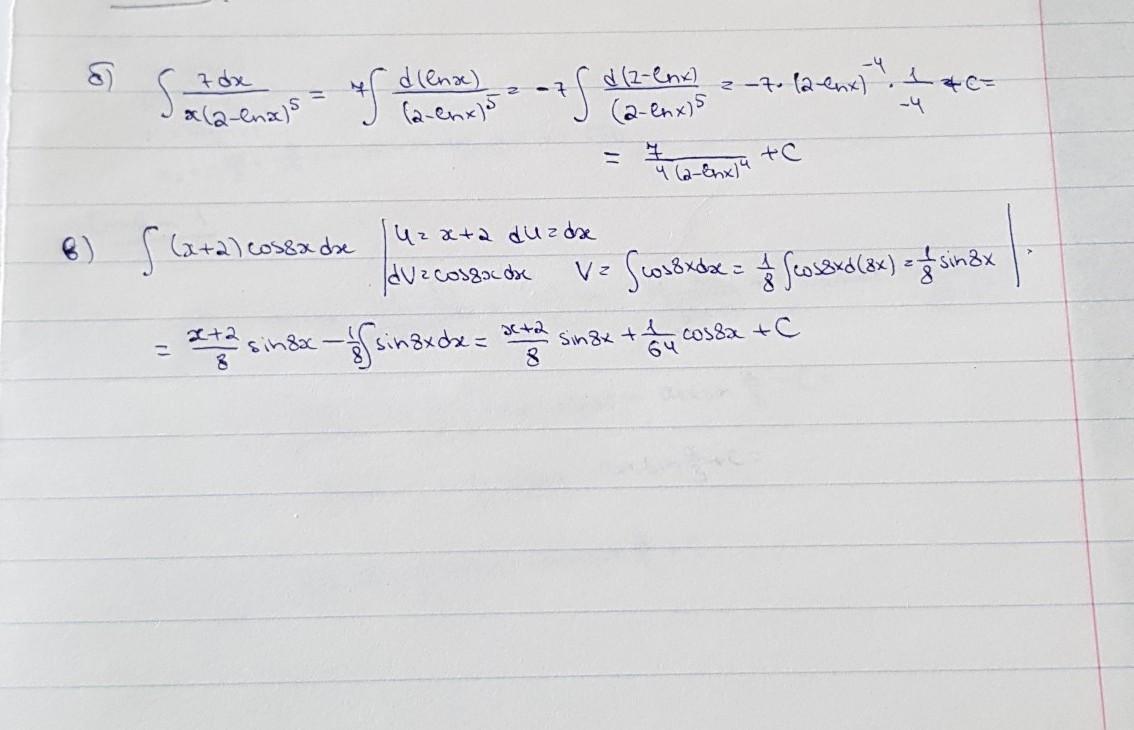 б) ∫ 7dx / x(2-lnx)^5 = 7∫ d(lnx) / (2-lnx)^5 = -7∫ d(2-lnx) / (2-lnx)^5 = -7·(2-lnx)^-4 · 1/-4 + C =
= 7 / 4(2-lnx)^4 + C
в) ∫ (x+2)cos8xdx | U = x+2 dU = dx
dV = cos8xdx V = ∫cos8xdx = 1/8 ∫cos8xd(8x) = 1/8 sin8x |
= x+2/8 sin8x - 1/8 ∫sin8xdx = x+2/8 sin8x + 1/64 cos8x + C